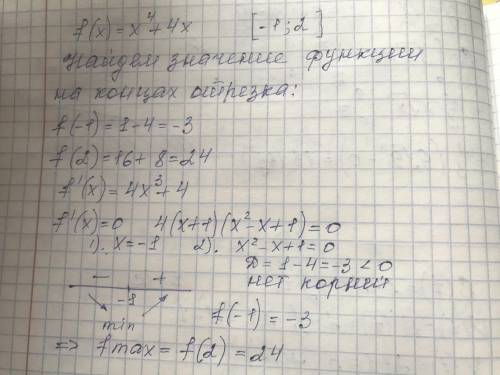 f(x) = x⁴+4x [-1;2]
Найдем значение функции
на концах отрезка:
f(-1) = 1-4 = -3
f(2) = 16+8 = 24
f'(x) = 4x³+4
f'(x)=0 4(x+1)(x²-x+1)=0
1). x=-1 2). x²-x+1=0
Д = 1-4 = -3 < 0
нет корней
- +
-1
min
f(-1) = -3
=> fmax = f(2) = 24